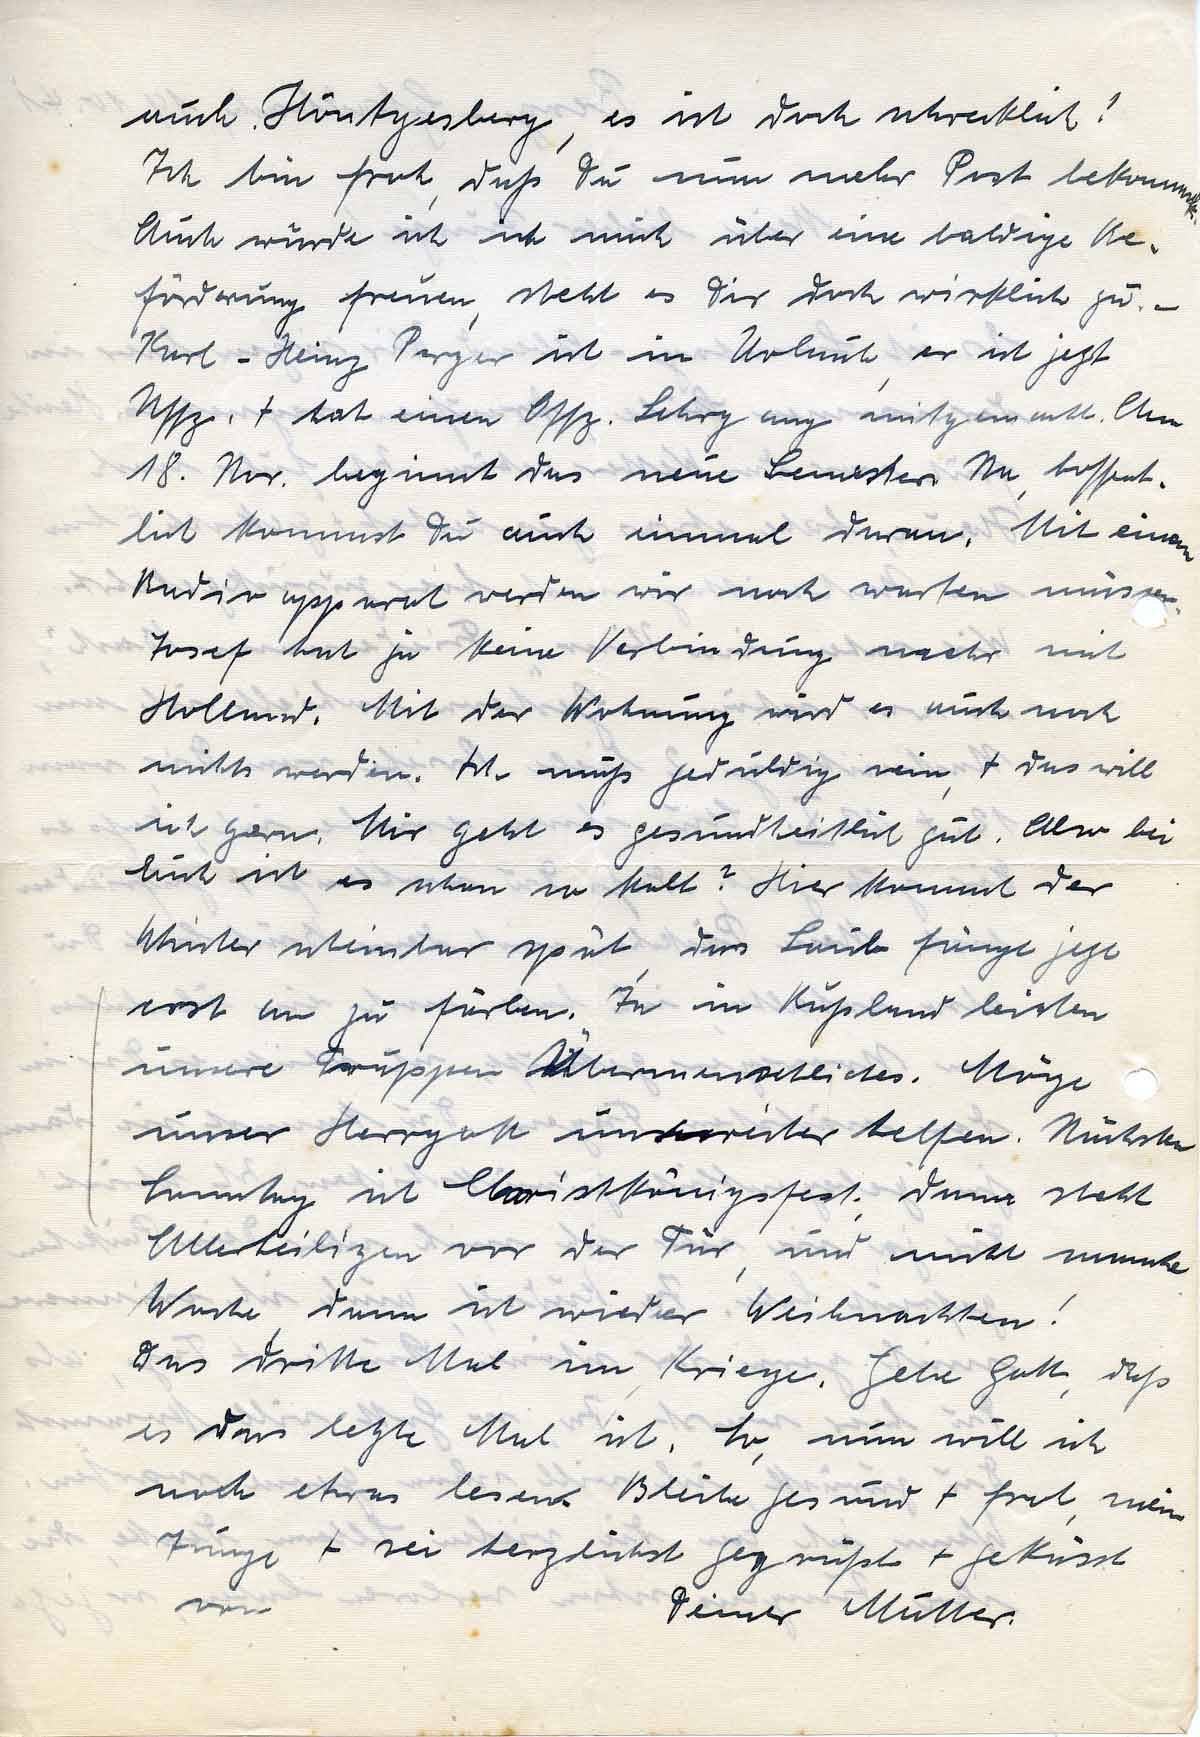 auch Höntgesberg, es ist doch schrecklich!
Ich bin froh, daß Du nun mehr Post bekommst.
Auch würde ich ich mich über eine baldige Be-
förderung freuen, steht es Dir doch wirklich zu. –
Karl-Heinz Perger ist in Urlaub, er ist jetzt
Uffz. + hat einen Offz. Lehrgang mitgemacht. Am
18. Nov. beginnt das neue Semester. Na, hoffent-
lich kommst Du auch einmal daran. Mit einem
Radioapparat werden wir noch warten müssen.
Josef hat ja keine Verbindung mehr mit
Holland. Mit der Wohnung wird es auch noch
nichts werden. Ich muß geduldig sein, + das will
ich gern. Mir geht es gesundheitlich gut. Also bei
Euch ist es schon so kalt? Hier kommt der
Winter scheinbar spät, das Laub fängt jetzt
erst an zu färben. Ja in Rußland leisten
unsere Truppen Übermenschliches. Möge
unser Herrgott uns weiter helfen. Nächsten
Sonntag ist Christkönigsfest, dann steht
Allerheiligen vor der Tür, und nicht manche
Woche, dann ist wieder Weihnachten!
Das dritte Mal im Kriege. Gebe Gott, daß
es das letzte Mal ist. So, nun will ich
noch etwas lesen. Bleibe gesund + froh, mein
Junge + sei herzlichst gegrüßt + geküsst
von Deiner Mutter.